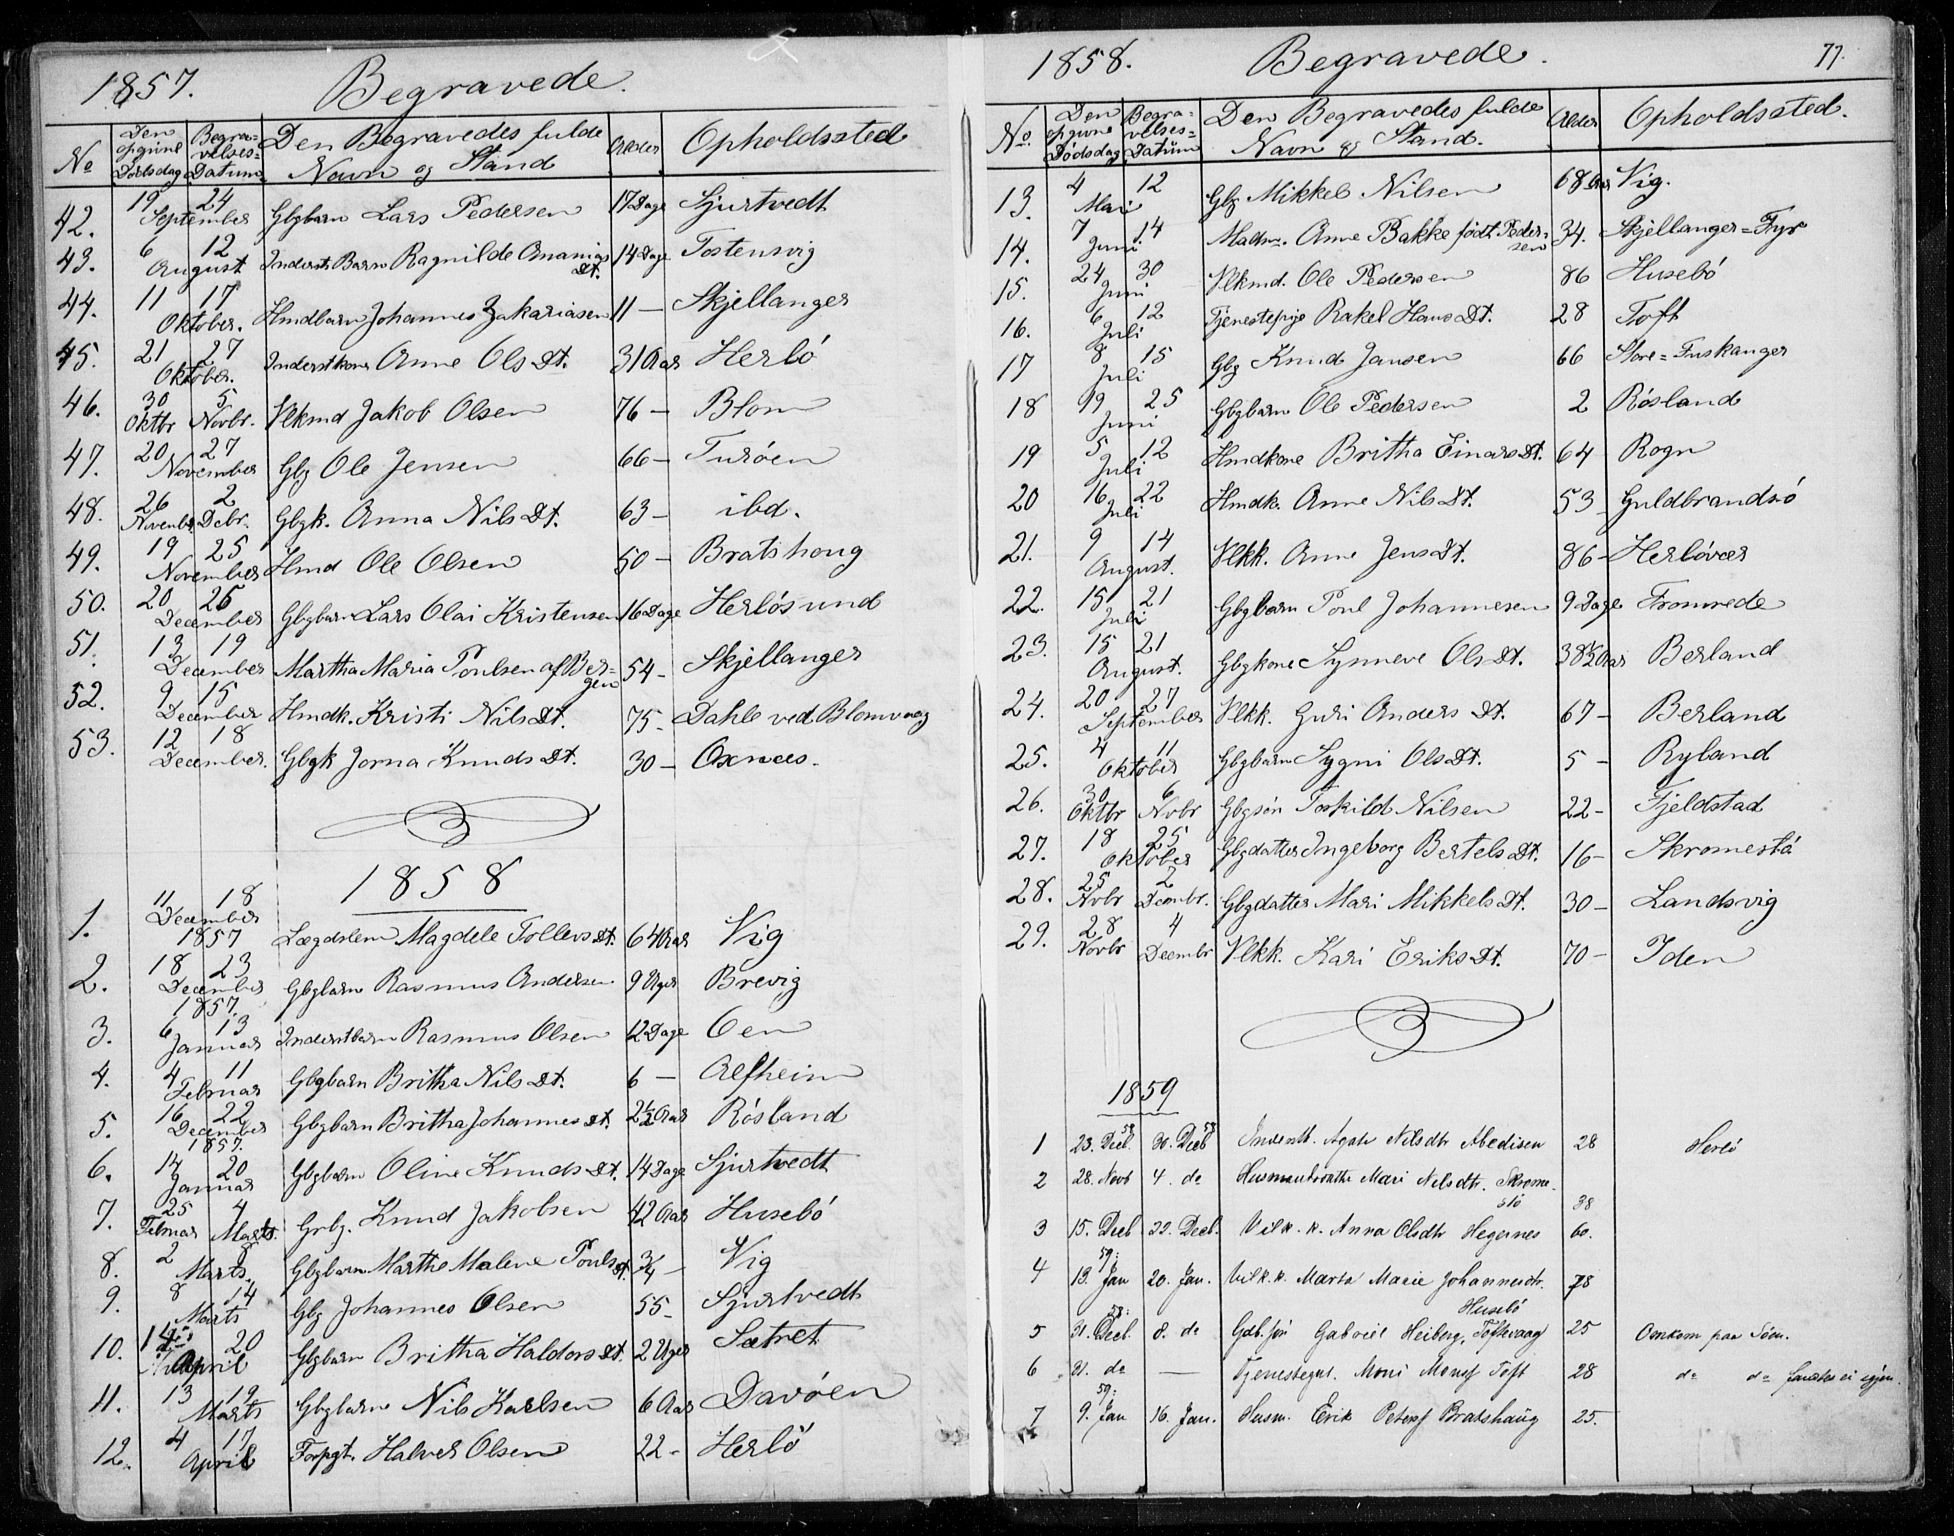 1857. Begravede.
No Den opgivne Dödsdag Begravelses=Datum Den Begravedes fulde Navn og Stand Alder Opholdssted
42. 19 24 September Gbgbarn Lars Pedersen 17 Dage Sjurtvedt
43. 6 12 August Inderst Barn Ragnilde Ananias Dt. 14 Dage Tostensvig
44. 11 17 Oktober. Hmdbarn Johannes Zakariasen 11 — Skjellanger
45. 21 27 Oktober. Inderstkone Anne Ols Dt. 31 Aar Herlö
46. 30 Oktbr 5 Novbr. Vlkmd Jakob Olsen 76 — Blom
47. 20 27 November Gbg Ole Jensen 66 — Turöen
48. 26 Novembr. 2 Debr. Gbgk. Anna Nils Dt. 63 — ibd.
49. 19 25 November Hmd Ole Olsen 50 — Bratshoug
50. 20 26 December Gbgbarn Lars Olai Kristensen 16 Dage Herlösund
51. 13 19 December Martha Maria Poulsen af Ber=gen 54 - Skjellanger
52. 9 15 December Hmdk. Kristi Nils Dt. 75 - Dahle ved Blomvaag
53. 12 18 December. Gbgk Jorna Knuds Dt. 30 — Oxnæs.
1858
1. 11 18 December 1857 Lægdslem Magdele Tollevs Dt. 64 Aar Vig
2. 18 23 December 1857. Gbgbarn Rasmus Andersen 9 Uger Brevig
3. 6 13 Januar Inderstbarn Rasmus Olsen 12 Dage Oen
4. 4 11 Februar Gbgbarn Britha Nils Dt. 6 — Alfheim
5. 16 22 December 1857. Gbgbarn Britha Johannes Dt. 2½ Aar Rösland
6. 14 20 Januar Gbgbarn Oline Knuds Dt. 14 Dage Sjurtvedt
7. 25 Februar 4 Marts. Grbg. Knud Jakobsen 42 Aar Husebö
8. 2 8 Marts. Gbgbarn Marthe Malene Pouls Dt. 3/4 — Vig
9. 8 14 Marts Gbg Johannes Olsen 55 - Sjurtvedt
10. 14 20 April Gbgbarn Britha Haldors Dt. 2 Uger Sætret
11. 13 19 Marts Gbgbarn Nils Karlsen 6 Aar Davöen
12. 4 17 April Forpgt. Halver Olsen 22 - Herlö
1858. Begravede. 77.
No. Den opgivne Dödsdag Begravelses=Datum Den Begravedes fulde Navn og Stand. Alder Opholdssted.
13. 4 12 Mai Gbg Mikkel Nilsen 68 Aar Vig.
14. 7 14 Juni Madm. Anne Bakke födt Peder=sen 34. Skjellanger=Fyr
15. 24 30 Juni Vlkmd. Ole Pedersen 86 Husebö
16. 6 12 Juli Tjenestepige Rakel Hans Dt. 28 Toft
17 8 15 Juli Gbg Knud Jansen 66 Store=Fuskanger
18 19 25 Juni Gbgbarn Ole Pedersen 2 Rösland
19 5 12 Juli Hmdkone Britha Einars Dt. 64 Rogn
20 16 22 Juli Hmdk. Anne Nils Dt. 53 Guldbrandsö
21. 9 14 August. Vlkk. Anne Jens Dt. 86 - Herlövær
22. 15 21 Juli Gbgbarn Poul Johannesen 9 Dage Fromrede
23. 15 21 August. Gbgkone Synneve Ols Dt. 38½ Aar Berland
24. 20 27 September Vlkk. Guri Anders Dt. 67 - Berland
25. 4 11 Oktober Gbgbarn Sygni Ols Dt. 5 - Ryland
26. 30 Oktbr 6 Novbr Gbgsön Toskild Nilsen 22 - Fjeldstad
27. 18 25 Oktober Gbgdatter Ingeborg Bertels Dt. 16 - Skromestö
28. 25 Novbr 2 Dcembr. Gbgdatter Mari Mikkels Dt. 30 - Landsvig
29. 28 Novbr 4 Decembr Vlkk. Kari Eriks Dt. 70 - Iden
1859
1 23. Decb. 58 30. Decb 58 Inderst. Nilsdtr 28 Herlö
2 28. Novb 4. do Mari Nilsdtr. Skrome-stö 38
3 15. Decb 22. Decb. Vilk. k. Anna Olsdtr Hegernes 60.
4 59: 13. Jan 20. Jan. Vilk. k. Marta Marie Johannesdtr. Husebö 78
5 58: 31. Decb. 8. do Gdb. sön Gabriel Heiberg, Toftevaag 25 Omkom paa Söen.
6 31. do — Tjenestegut. Moni Monss Toft 28 do do fandtes ei igjen.
7 59: 9. Jan 16. Jan. Husm. Erik Peterss Bratshaug 25.